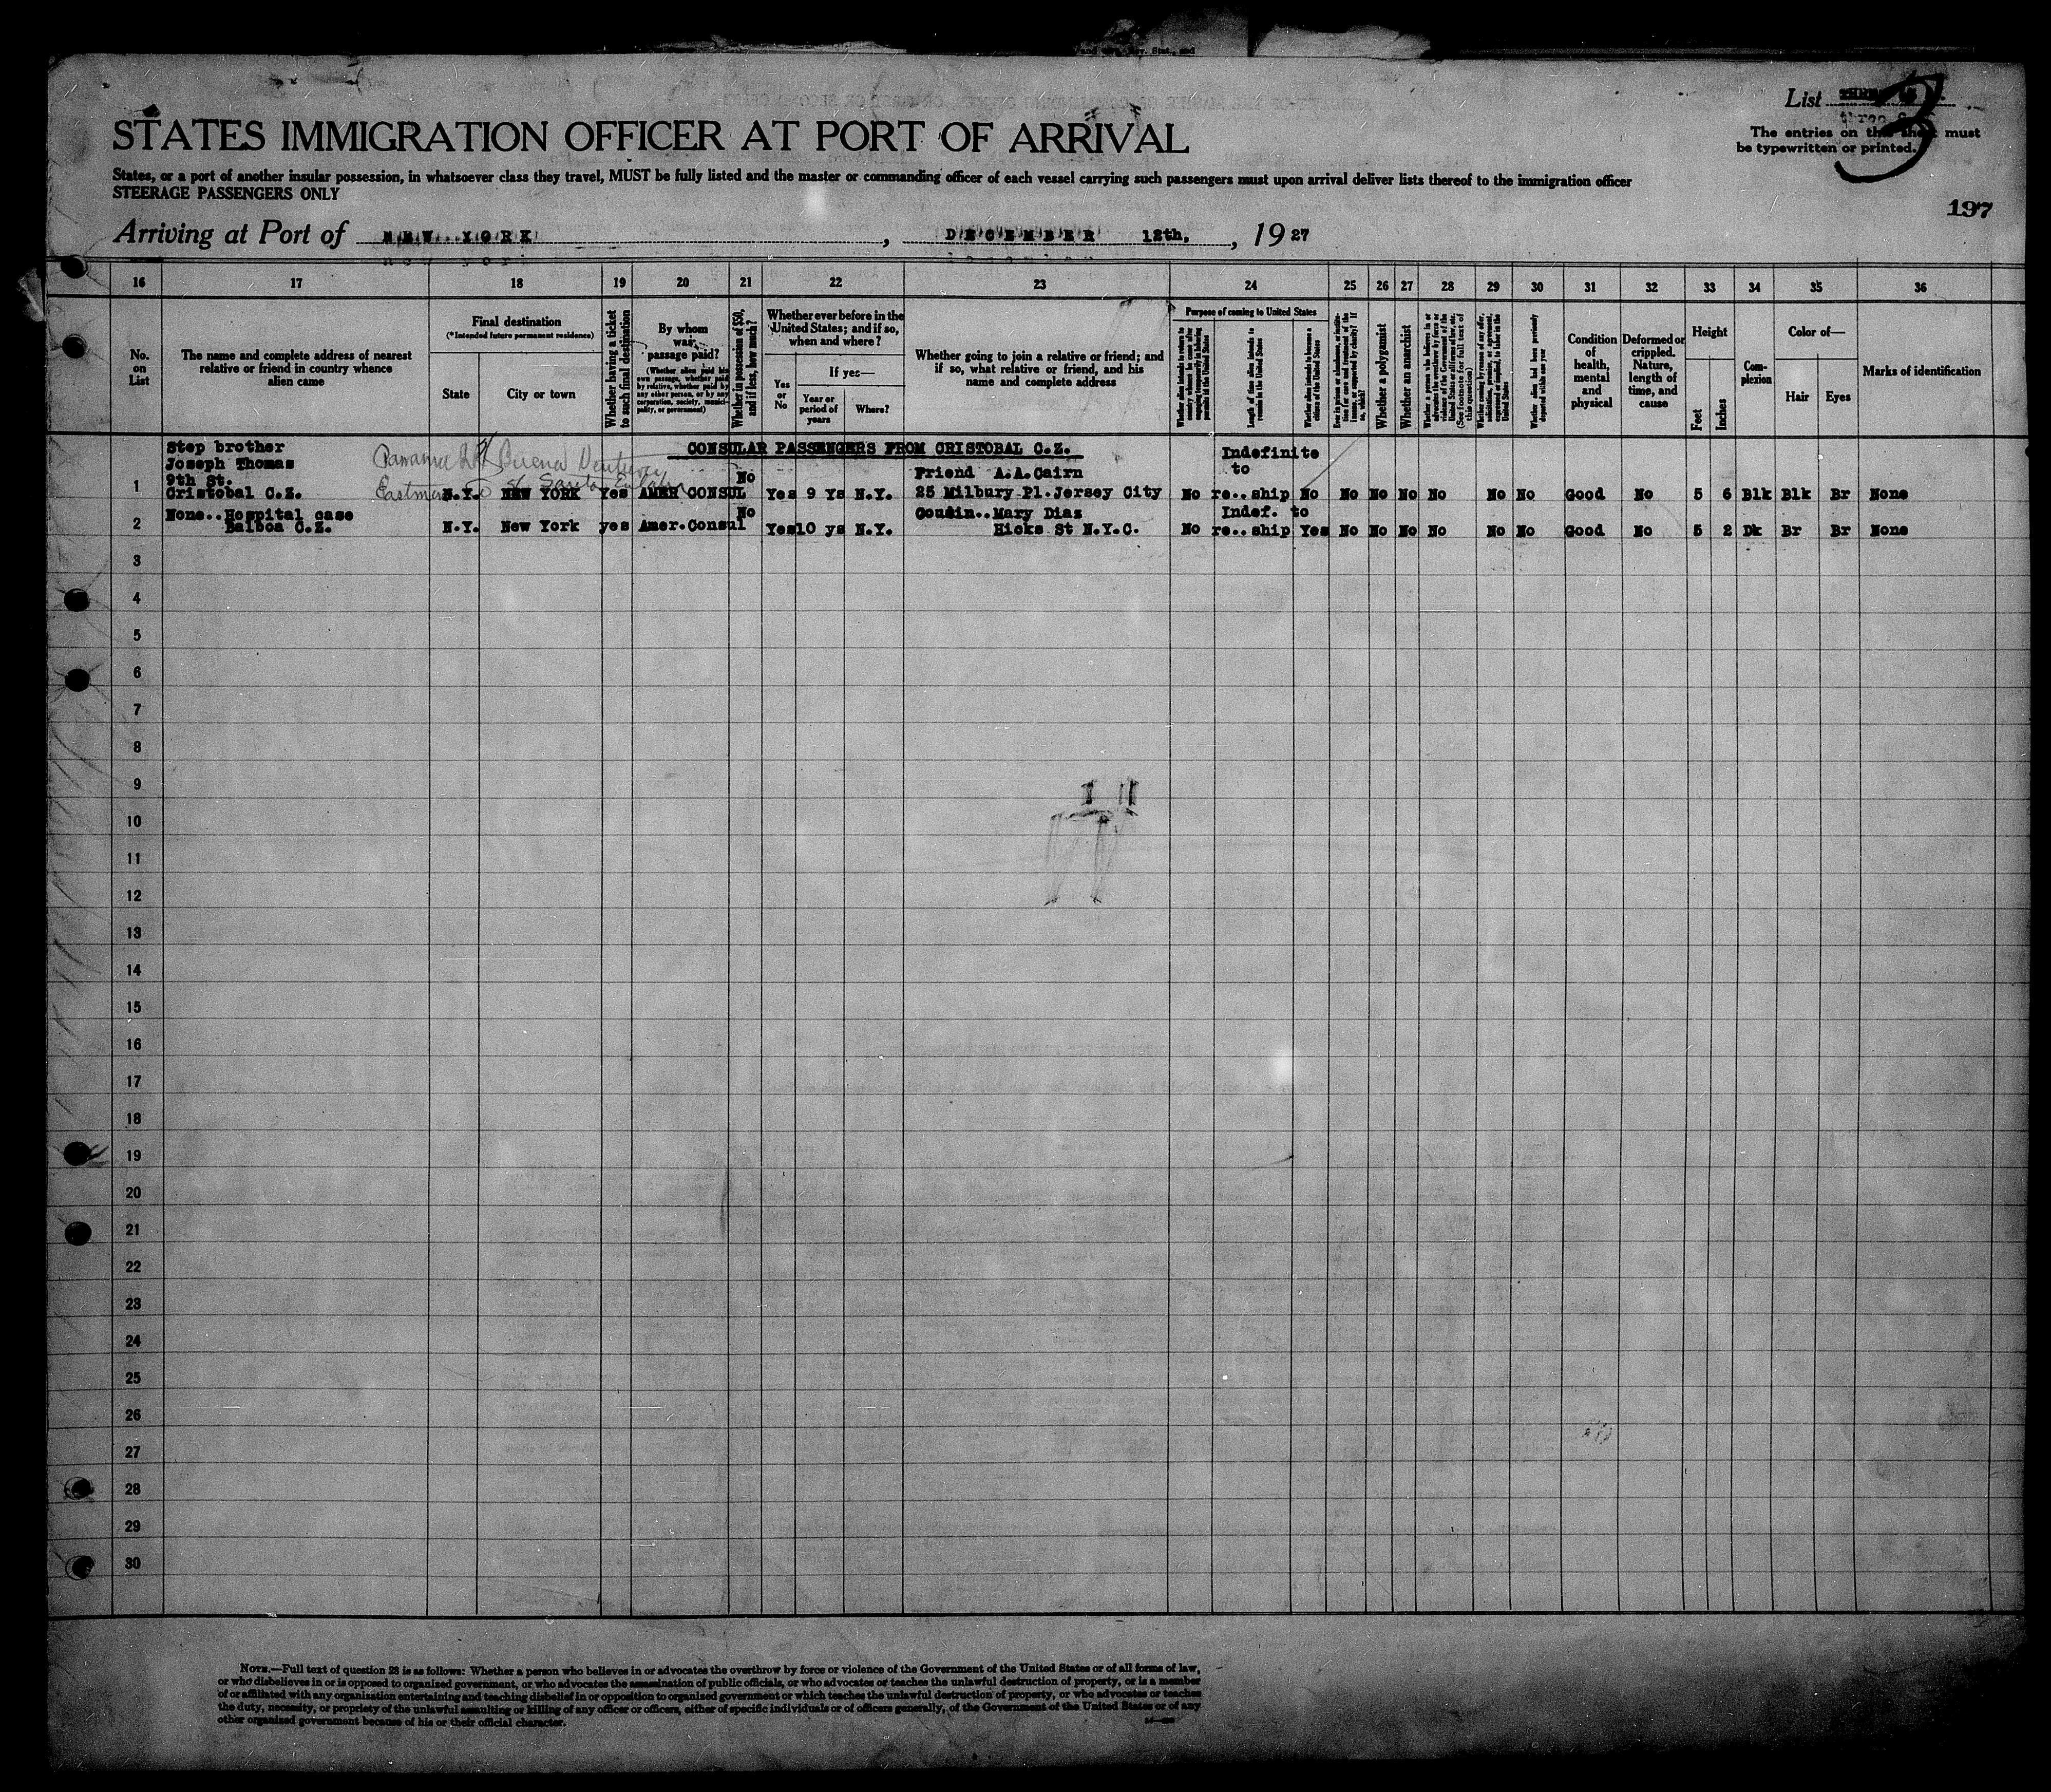 List
STATES IMMIGRATION OFFICER AT PORT OF ARRIVAL
The entries on this sheet must
be typewritten or printed.
States, or a port of another insular possession, in whatsoever class they travel, MUST be fully listed and the master or commanding officer of each vessel carrying such passengers must upon arrival deliver lists thereof to the immigration officer
STEERAGE PASSENGERS ONLY
197
Arriving at Port of NEW YORK, DECEMBER 12th, 1927
16 17 18 19 20 21 22 23 24 25 26 27 28 29 30 31 32 33 34 35 36
No. on List
The name and complete address of nearest relative or friend in country whence alien came
Final destination
(*Intended future permanent residence)
State
City or town
Whether having a ticket to such final destination
By whom was passage paid?
(Whether alien paid his own passage, whether paid by relative, whether paid by any other person, or by any corporation, society, municipality, or government)
Whether in possession of $50, and if less, how much?
Whether ever before in the United States; and if so, when and where?
Yes or No
If yes—
Year or period of years
Where?
Whether going to join a relative or friend; and if so, what relative or friend, and his name and complete address
Purpose of coming to United States
Length of time alien intends to remain in the United States
Whether alien intends to become a citizen of the United States
Whether a polygamist
Whether an anarchist
Whether alien had been previously deported within one year
Condition of health, mental and physical
Deformed or crippled. Nature, length of time, and cause
Height
Feet
Inches
Complexion
Color of—
Hair
Eyes
Marks of identification
CONSULAR PASSENGERS FROM CRISTOBAL C.Z.
Step brother
Joseph Thomas
9th St.
Indefinite
to
Friend A.A.Cairn
No
1 Cristobal C.Z. N.Y. NEW YORK Yes AMER CONSUL Yes 9 Ys N.Y. 25 Milbury Pl.Jersey City No re..ship No No No No No No No Good No 5 6 Blk Blk Br None
None..Hospital case No Cousin..Mary Diaz Indef. to
2 Balboa C.Z. N.Y. New York yes Amer.Consul Yes 10 ys N.Y. Hicks St N.Y.C. No re..ship Yes No No No No No No Good No 5 2 Dk Br Br None
3
4
5
6
7
8
9
10
11
12
13
14
15
16
17
18
19
20
21
22
23
24
25
26
27
28
29
30
NOTE.—Full text of question 28 is as follows: Whether a person who believes in or advocates the overthrow by force or violence of the Government of the United States or of all forms of law,
or who disbelieves in or is opposed to organized government, or who advocates the assassination of public officials, or who advocates or teaches the unlawful destruction of property, or is a member
of or affiliated with any organization entertaining and teaching disbelief in or opposition to organized government or which teaches the unlawful destruction of property, or who advocates or teaches
the duty, necessity, or propriety of the unlawful assaulting or killing of any officer or officers, either of specific individuals or of officers generally, of the Government of the United States or of any
other organized government because of his or their official character.